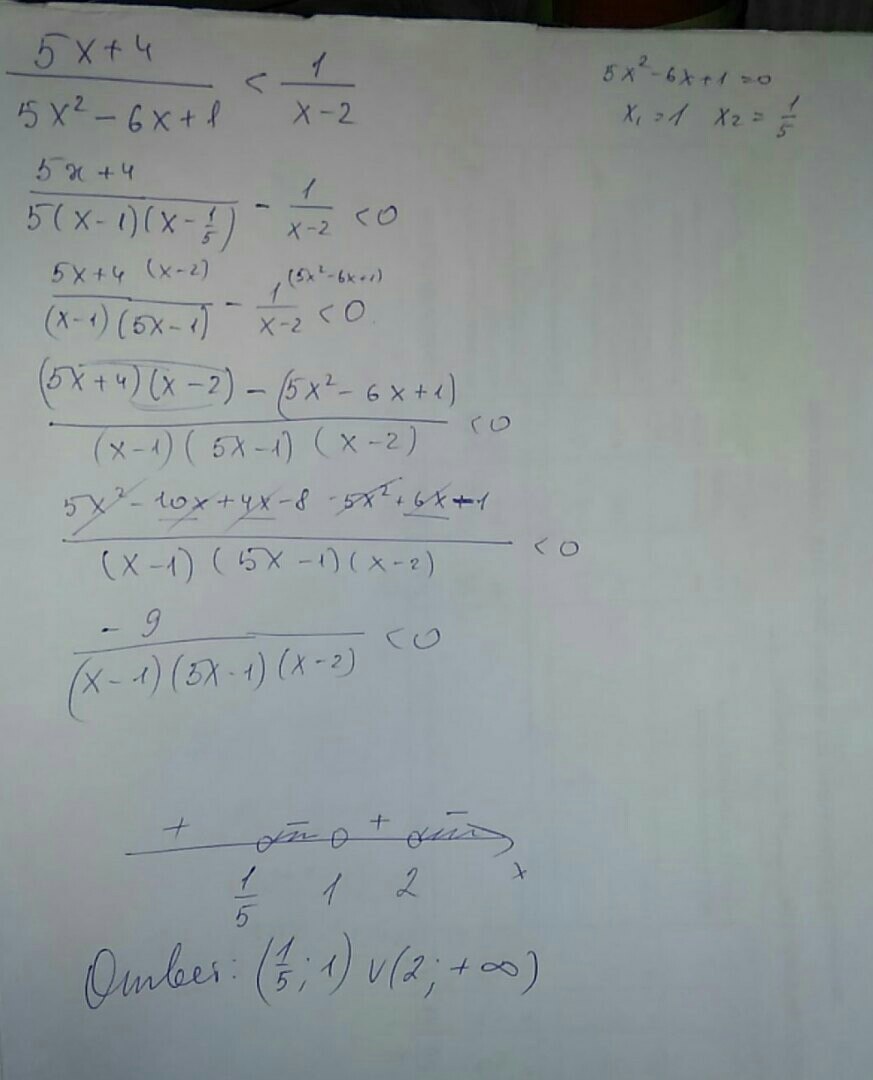 (5x+4)/(5x² − 6x+1) < 1/(x−2)
5x²−6x+1=0
x₁=1 x₂=1/5
(5x+4)/(5(x−1)(x−1/5)) − 1/(x−2) <0
(5x+4 (x−2))/((x−1)(5x−1)) − 1 (5x²−6x+1)/(x−2) <0
((5x+4)(x−2) − (5x²−6x+1))/((x−1)(5x−1)(x−2)) <0
(5x²−10x+4x−8 −5x²+6x−1)/((x−1)(5x−1)(x−2)) <0
−9/((x−1)(5x−1)(x−2)) <0
+ − + −
1/5 1 2 x
Ответ: (1/5; 1) ∪ (2; +∞)